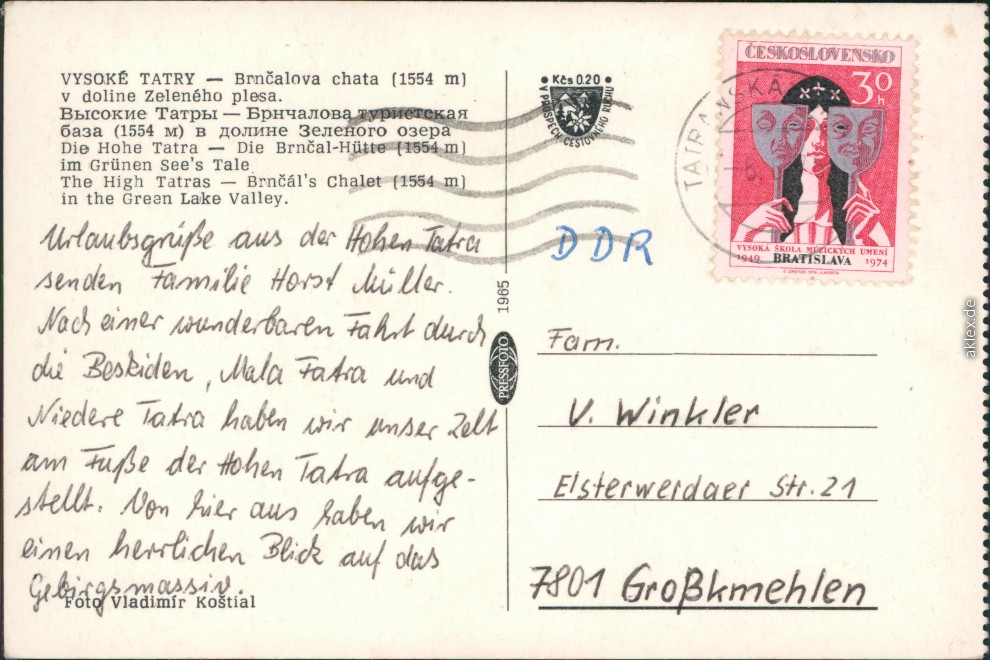 VYSOKÉ TATRY — Brnčalova chata (1554 m)
v doline Zeleného plesa.
Высокие Татры — Брнчалова туристская
база (1554 м) в долине Зеленого озера
Die Hohe Tatra — Die Brnčal-Hütte (1554 m)
im Grünen See's Tale
The High Tatras — Brnčál's Chalet (1554 m)
in the Green Lake Valley.
Urlaubsgrüße aus der Hohen Tatra
senden Familie Horst Müller.
Nach einer wunderbaren Fahrt durch
die Beskiden, Mala Fatra und
Niedere Tatra haben wir unser Zelt
am Fuße der Hohen Tatra aufge-
stellt. Von hier aus haben wir
einen herrlichen Blick auf das
Gebirgsmassiv.
Foto Vladimír Koštial
1965
PRESSFOTO
• Kčs 0.20 •
V PROSPECH CESTOVNÉHO RUCHU
TATRANSKÁ
ČESKOSLOVENSKO
30 h
VYSOKÁ ŠKOLA MÚZICKÝCH UMENÍ
1949 BRATISLAVA 1974
DDR
Fam.
V. Winkler
Elsterwerdaer Str. 21
7801 Großkmehlen
aklex.de